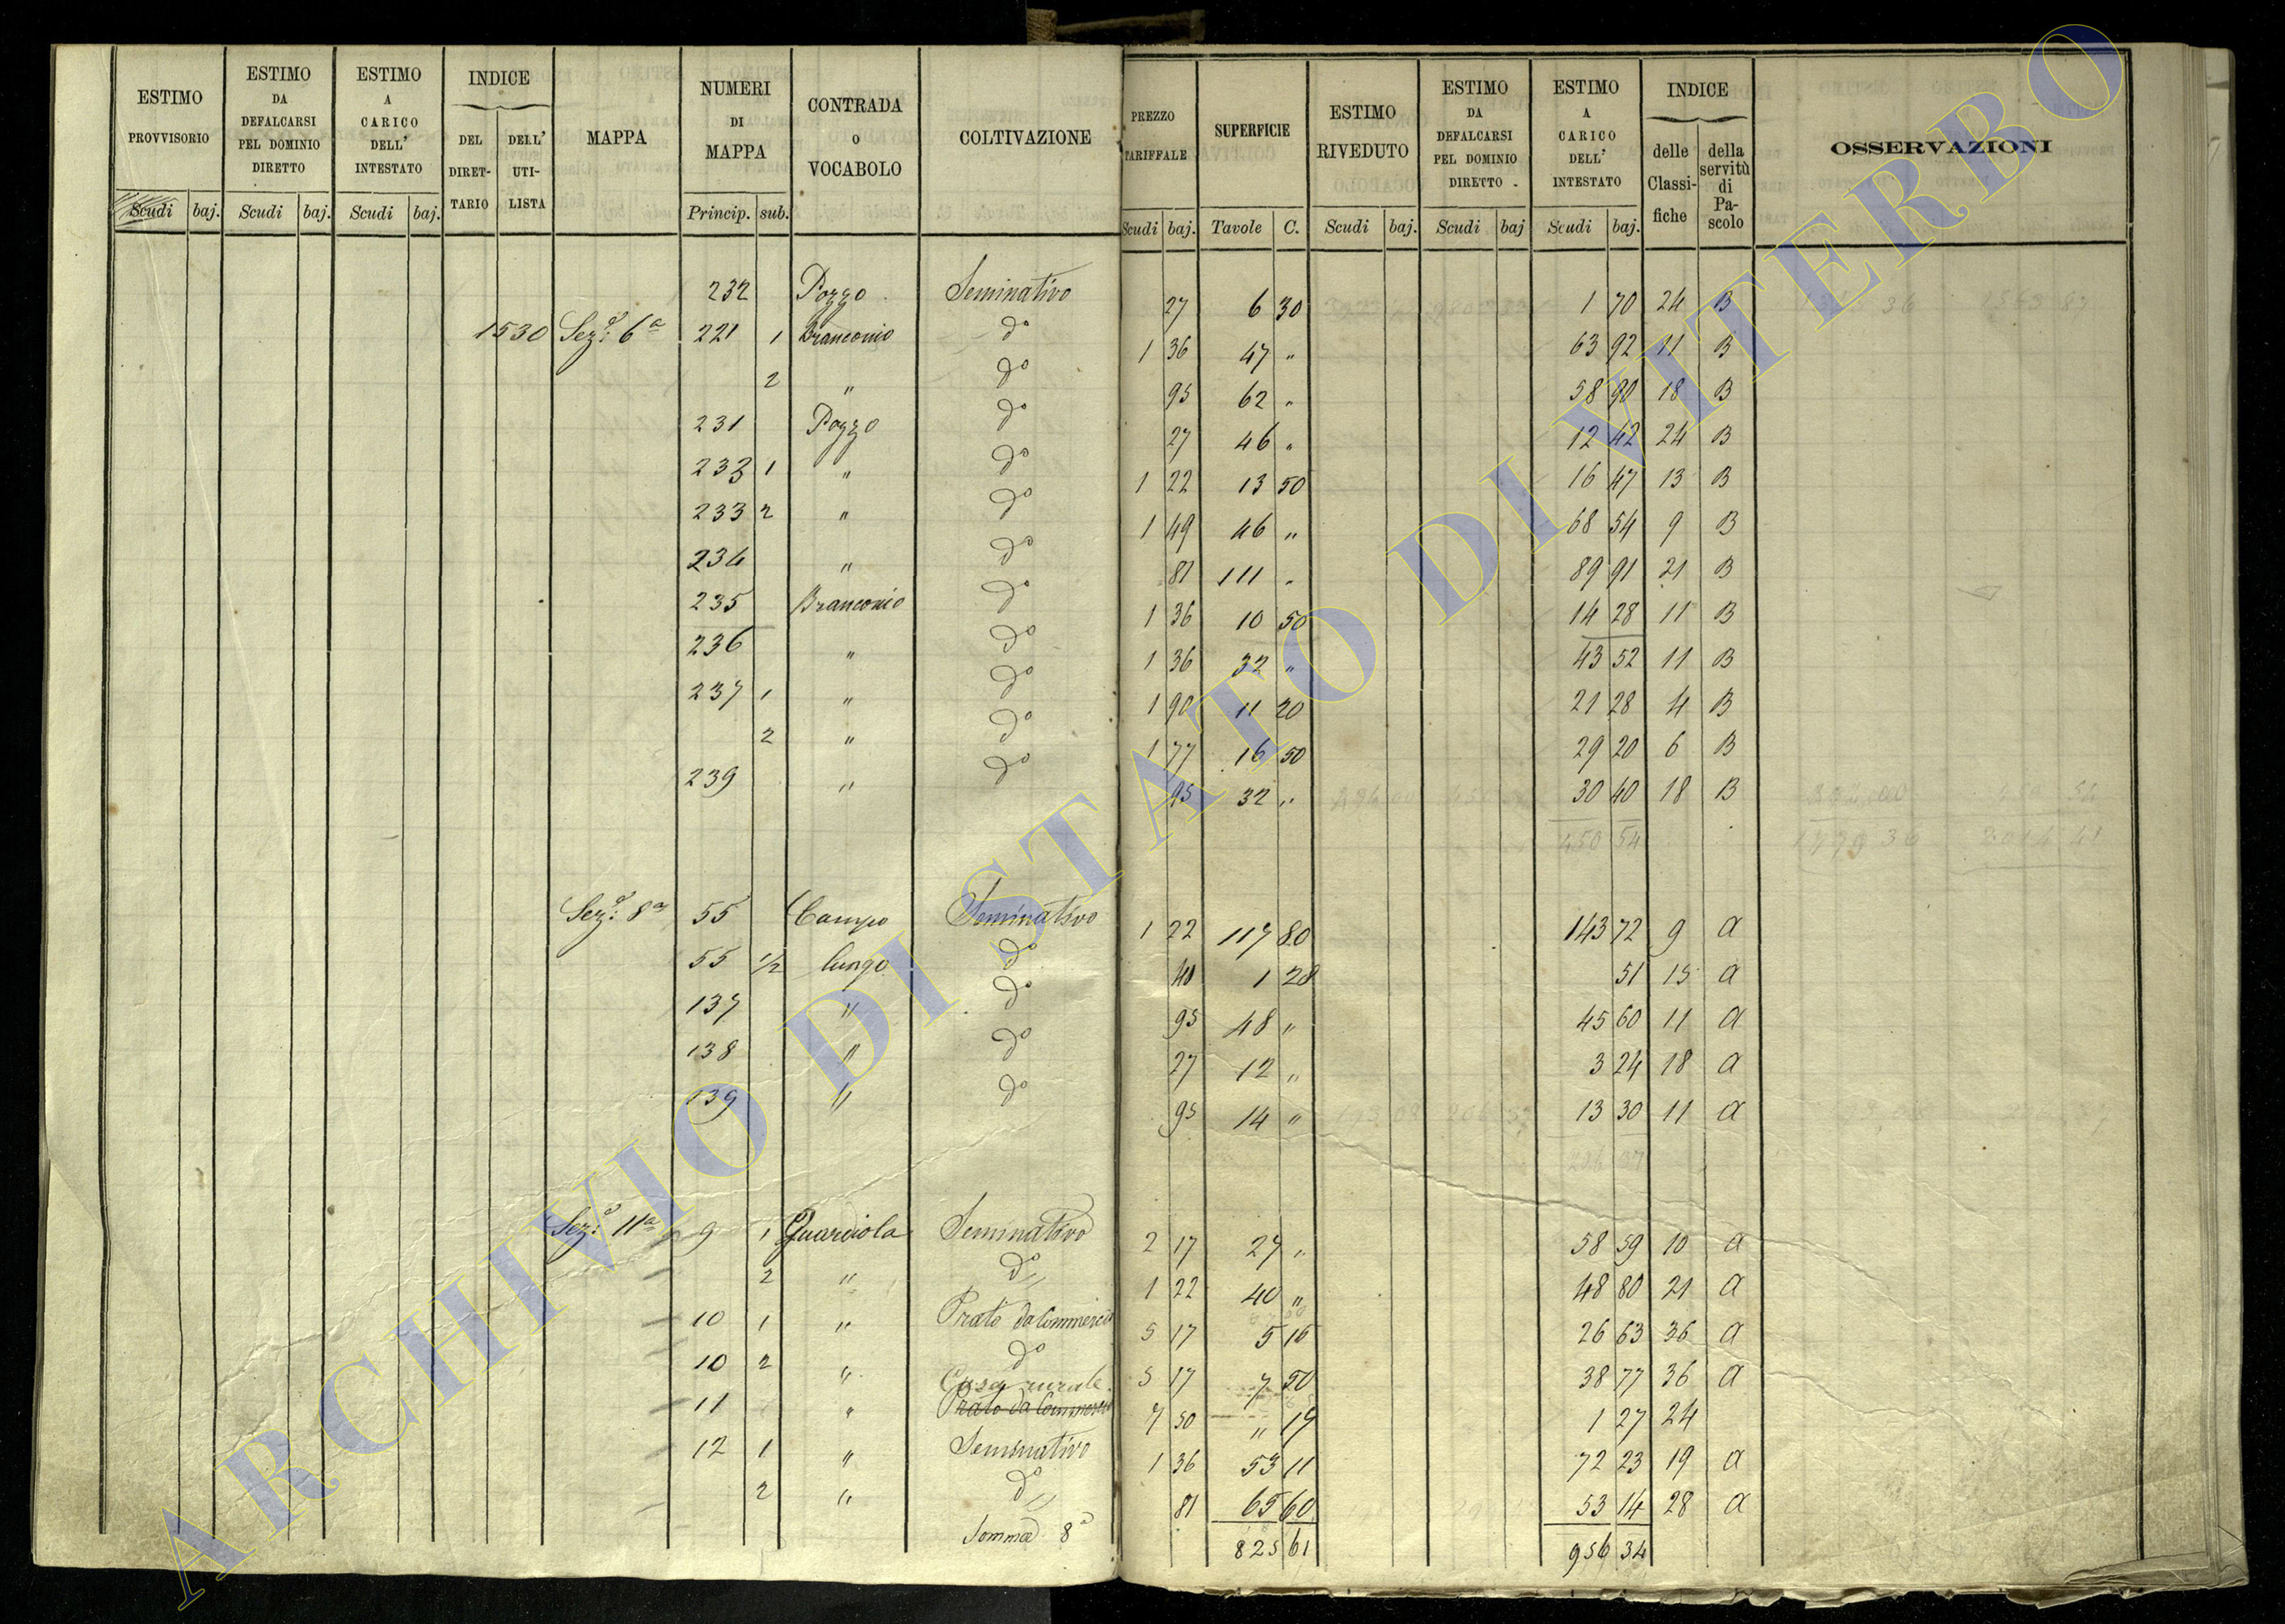 ESTIMO PROVVISORIO | ESTIMO DA DEFALCARSI PEL DOMINIO DIRETTO | ESTIMO A CARICO DELL' INTESTATO | INDICE | MAPPA | NUMERI DI MAPPA | CONTRADA o VOCABOLO | COLTIVAZIONE | PREZZO TARIFFALE | SUPERFICIE | ESTIMO RIVEDUTO | ESTIMO DA DEFALCARSI PEL DOMINIO DIRETTO | ESTIMO A CARICO DELL' INTESTATO | INDICE | OSSERVAZIONI
DEL DIRETTARIO | DELL' UTILISTA | delle Classifiche | della servitù di Pascolo
Scudi | baj. | Scudi | baj. | Scudi | baj. | Princip. | sub. | Scudi | baj. | Tavole | C. | Scudi | baj. | Scudi | baj | Scudi | baj.
232 | Pozzo | Seminativo | 27 | 6 30 | 1 70 | 24 | B
1530 | Sez.e 6a | 221 | 1 | Branconio | do | 1 36 | 47 " | 63 92 | 11 | B
2 | " | do | 95 | 62 " | 58 90 | 18 | B
231 | Pozzo | do | 27 | 46 " | 12 42 | 24 | B
233 | 1 | " | do | 1 22 | 13 50 | 16 47 | 13 | B
233 | 2 | " | do | 1 49 | 46 " | 68 54 | 9 | B
234 | " | do | 81 | 111 " | 89 91 | 21 | B
235 | Branconio | do | 1 36 | 10 50 | 14 28 | 11 | B
236 | " | do | 1 36 | 32 " | 43 52 | 11 | B
237 | 1 | " | do | 1 90 | 11 20 | 21 28 | 4 | B
2 | " | do | 1 77 | 16 50 | 29 20 | 6 | B
239 | " | do | 95 | 32 " | 30 40 | 18 | B
450 54
Sez.e 8a | 55 | Campo | Seminativo | 1 22 | 117 80 | 143 72 | 9 | a
55 | 1/2 | lungo | do | 40 | 1 28 | 51 | 15 | a
137 | " | do | 95 | 48 " | 45 60 | 11 | a
138 | " | do | 27 | 12 " | 3 24 | 18 | a
139 | " | do | 95 | 14 " | 13 30 | 11 | a
206 37
Sez.e 11a | 9 | 1 | Guardiola | Seminativo | 2 17 | 27 " | 58 59 | 10 | a
2 | " | do | 1 22 | 40 " | 48 80 | 21 | a
10 | 1 | " | Prato da Commercio | 5 17 | 5 15 | 26 63 | 36 | a
10 | 2 | " | do | 5 17 | 7 50 | 38 77 | 36 | a
Casa rurale
11 | " | Prato da Commercio | 7 50 | " 17 | 1 27 | 24
12 | 1 | " | Seminativo | 1 36 | 53 11 | 72 23 | 19 | a
2 | " | do | 81 | 65 60 | 53 14 | 28 | a
Somma 8a | 825 61 | 956 34
ARCHIVIO DI STATO DI VITERBO